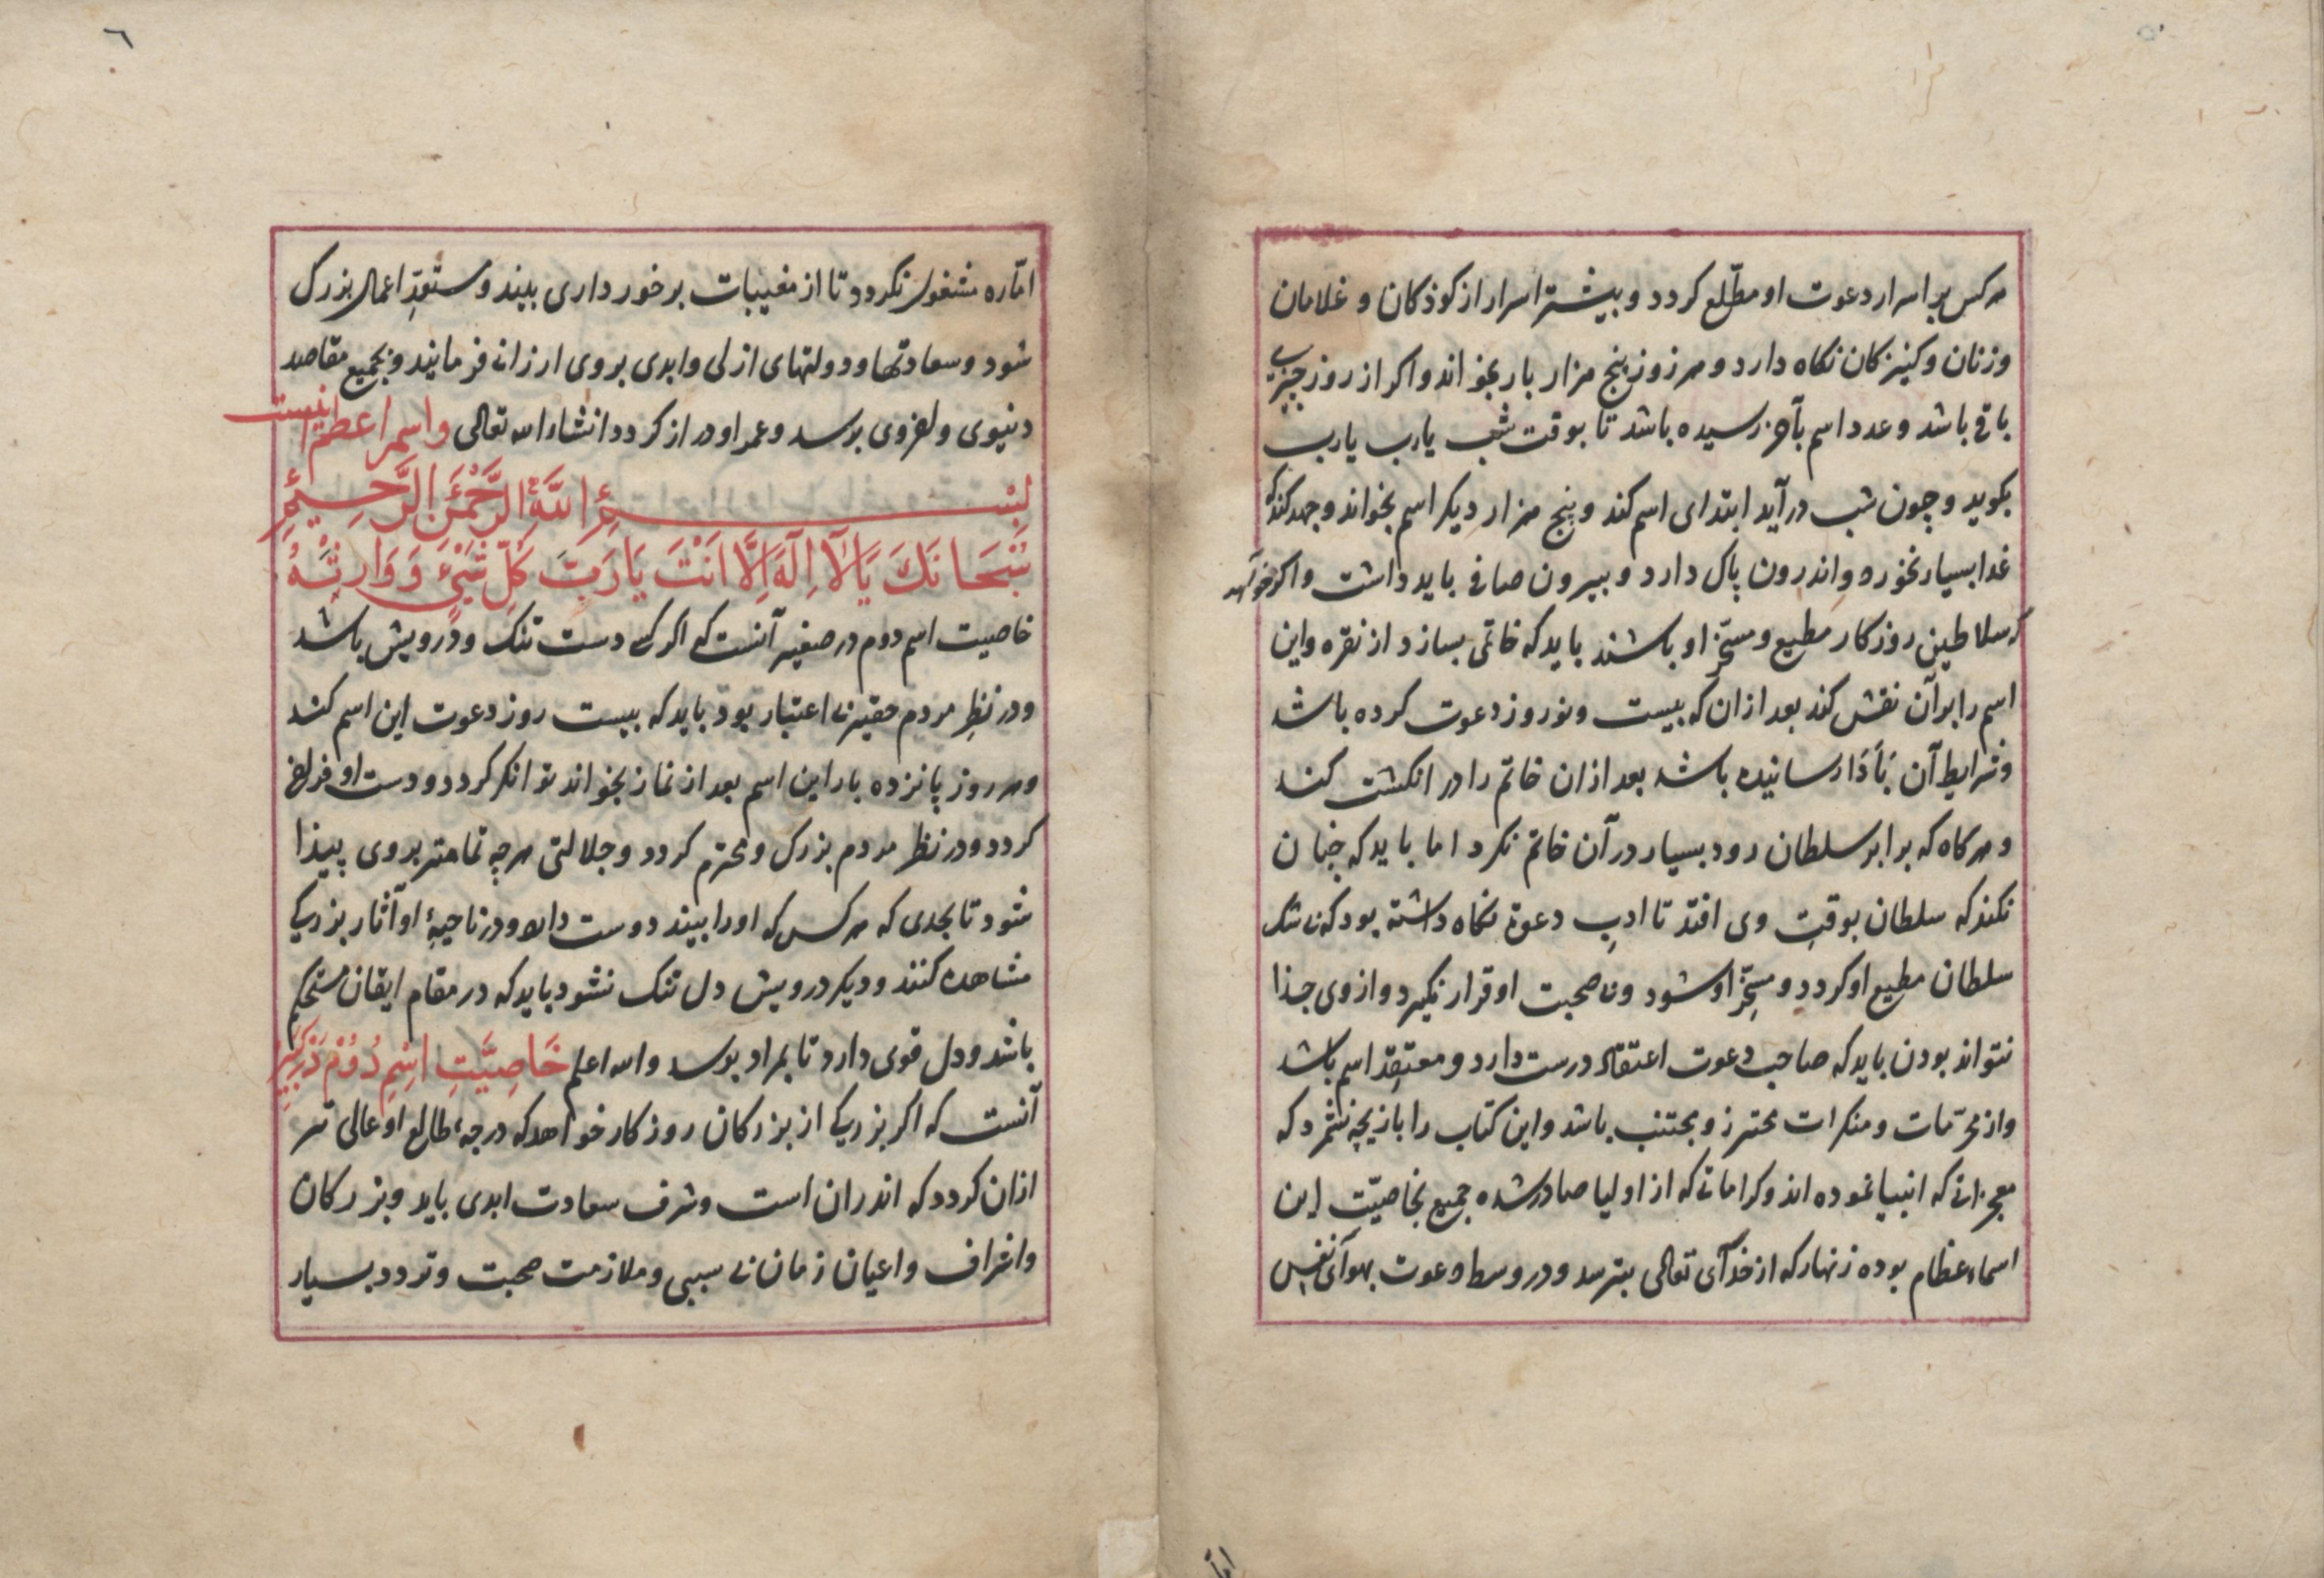 هر کس بر اسرار دعوت او مطّلع کردد و بیشتر اسرار از کوذکان و غلامان
و زنان و کنیزکان نکاه دارد و هر روز پنج هزار بار بخواند و اکر از روز چیزی
باقی باشد و عدد اسم بآخر رسیده باشد تا بوقت شب یارب یارب
بکوید و چون شب در آید ابتدای اسم کند و پنج هزار دیکر اسم بخواند و جهد کند که
غدا بسیار نخورد و اندرون پاک دارد و بیرون صافی باید داشت و اکر خواهد
که سلاطین روزکار مطیع و مسخّر او باشند باید که خاتمی بسازد از نقره و این
اسم را بر آن نقش کند بعد از ان که بیست و نه روز دعوت کرده باشد
و شرایط آن بأدا رسانیده باشد بعد از ان خاتم را در انکشت کند
و هر کاه که برابر سلطان رود بسیار در آن خاتم نکرد اما باید که چنان
نکند که سلطان بوقتِ وی افتد تا ادبِ دعوة نکاه داشته بود که بی شک
سلطان مطیع او کردد و مسخّر او شود و بی صحبت او قرار نکیرد و از وی جذا
نتواند بودن باید که صاحب دعوت اعتقاد درست دارد و معتقِد اسم باشد
و از محرّمات و منکرات محترز و مجتنب باشد و این کتاب را بازیچه نشمرد که
معجزاتی که انبیا نموده اند و کراماتی که از اولیا صادر شده جمیع بخاصیّت این
اسماء عظام بوده زنهار که از خدآی تعالی بترسد و در وسط دعوت بهوآی نفس
امّاره
٦
امّاره مشغول نکردد تا از مغیبات برخورداری بیند و مستعّدِ اعمال بزرک
شود و سعادتها و دولتهای ازلی و ابدی بر وی ارزانی فرمایند و بجمیع مقاصد
دنیوی و اخروی برسد و عمر او دراز کردد انشاء الله تعالی و اسم اعظم اینست
بِسْمِ اللَّهِ الرَّحْمَنِ الرَّحِيمِ
سُبْحَانَكَ يَا لَآ اِلَهَ اِلَّا اَنْتَ يَا رَبَّ كُلِّ شَيْءٍ وَ وَارِثَهُ
خاصیت اسم دوم در صغیر آنست که اکر کسی دست تنک و درویش باشد
و در نظرِ مردم حقیر و بی اعتبار بود باید که بیست روز دعوت این اسم کند
و هر روز پانزده بار این اسم بعد از نماز بخواند توانکر کردد و دست او فراخ
کردد و در نظر مردم بزرک و محترم کردد و جلالتی هر چه تمامتر بر وی پیذا
شود تا بحدی که هر کس که او را بیند دوست دارد و در ناحیهٔ او آثار بزرکی
مشاهده کنند و دیکر درویش دل تنک نشود باید که در مقام ایقان مستحکم
باشد و دل قوی دارد تا بمراد برسد والله اعلم خَاصِیَّتِ اسْمِ دُوُمْ دَر کَبِیر
آنست که اکر بزرکی از بزرکان روزکار خواهد که درجهٔ طالع او عالی تر
ازان کردد که اندران است و شرف سعادت ابدی یابد و بزرکان
و اشراف و اعیان زمان بی سببی و ملازمت صحبت و تردد بسیار